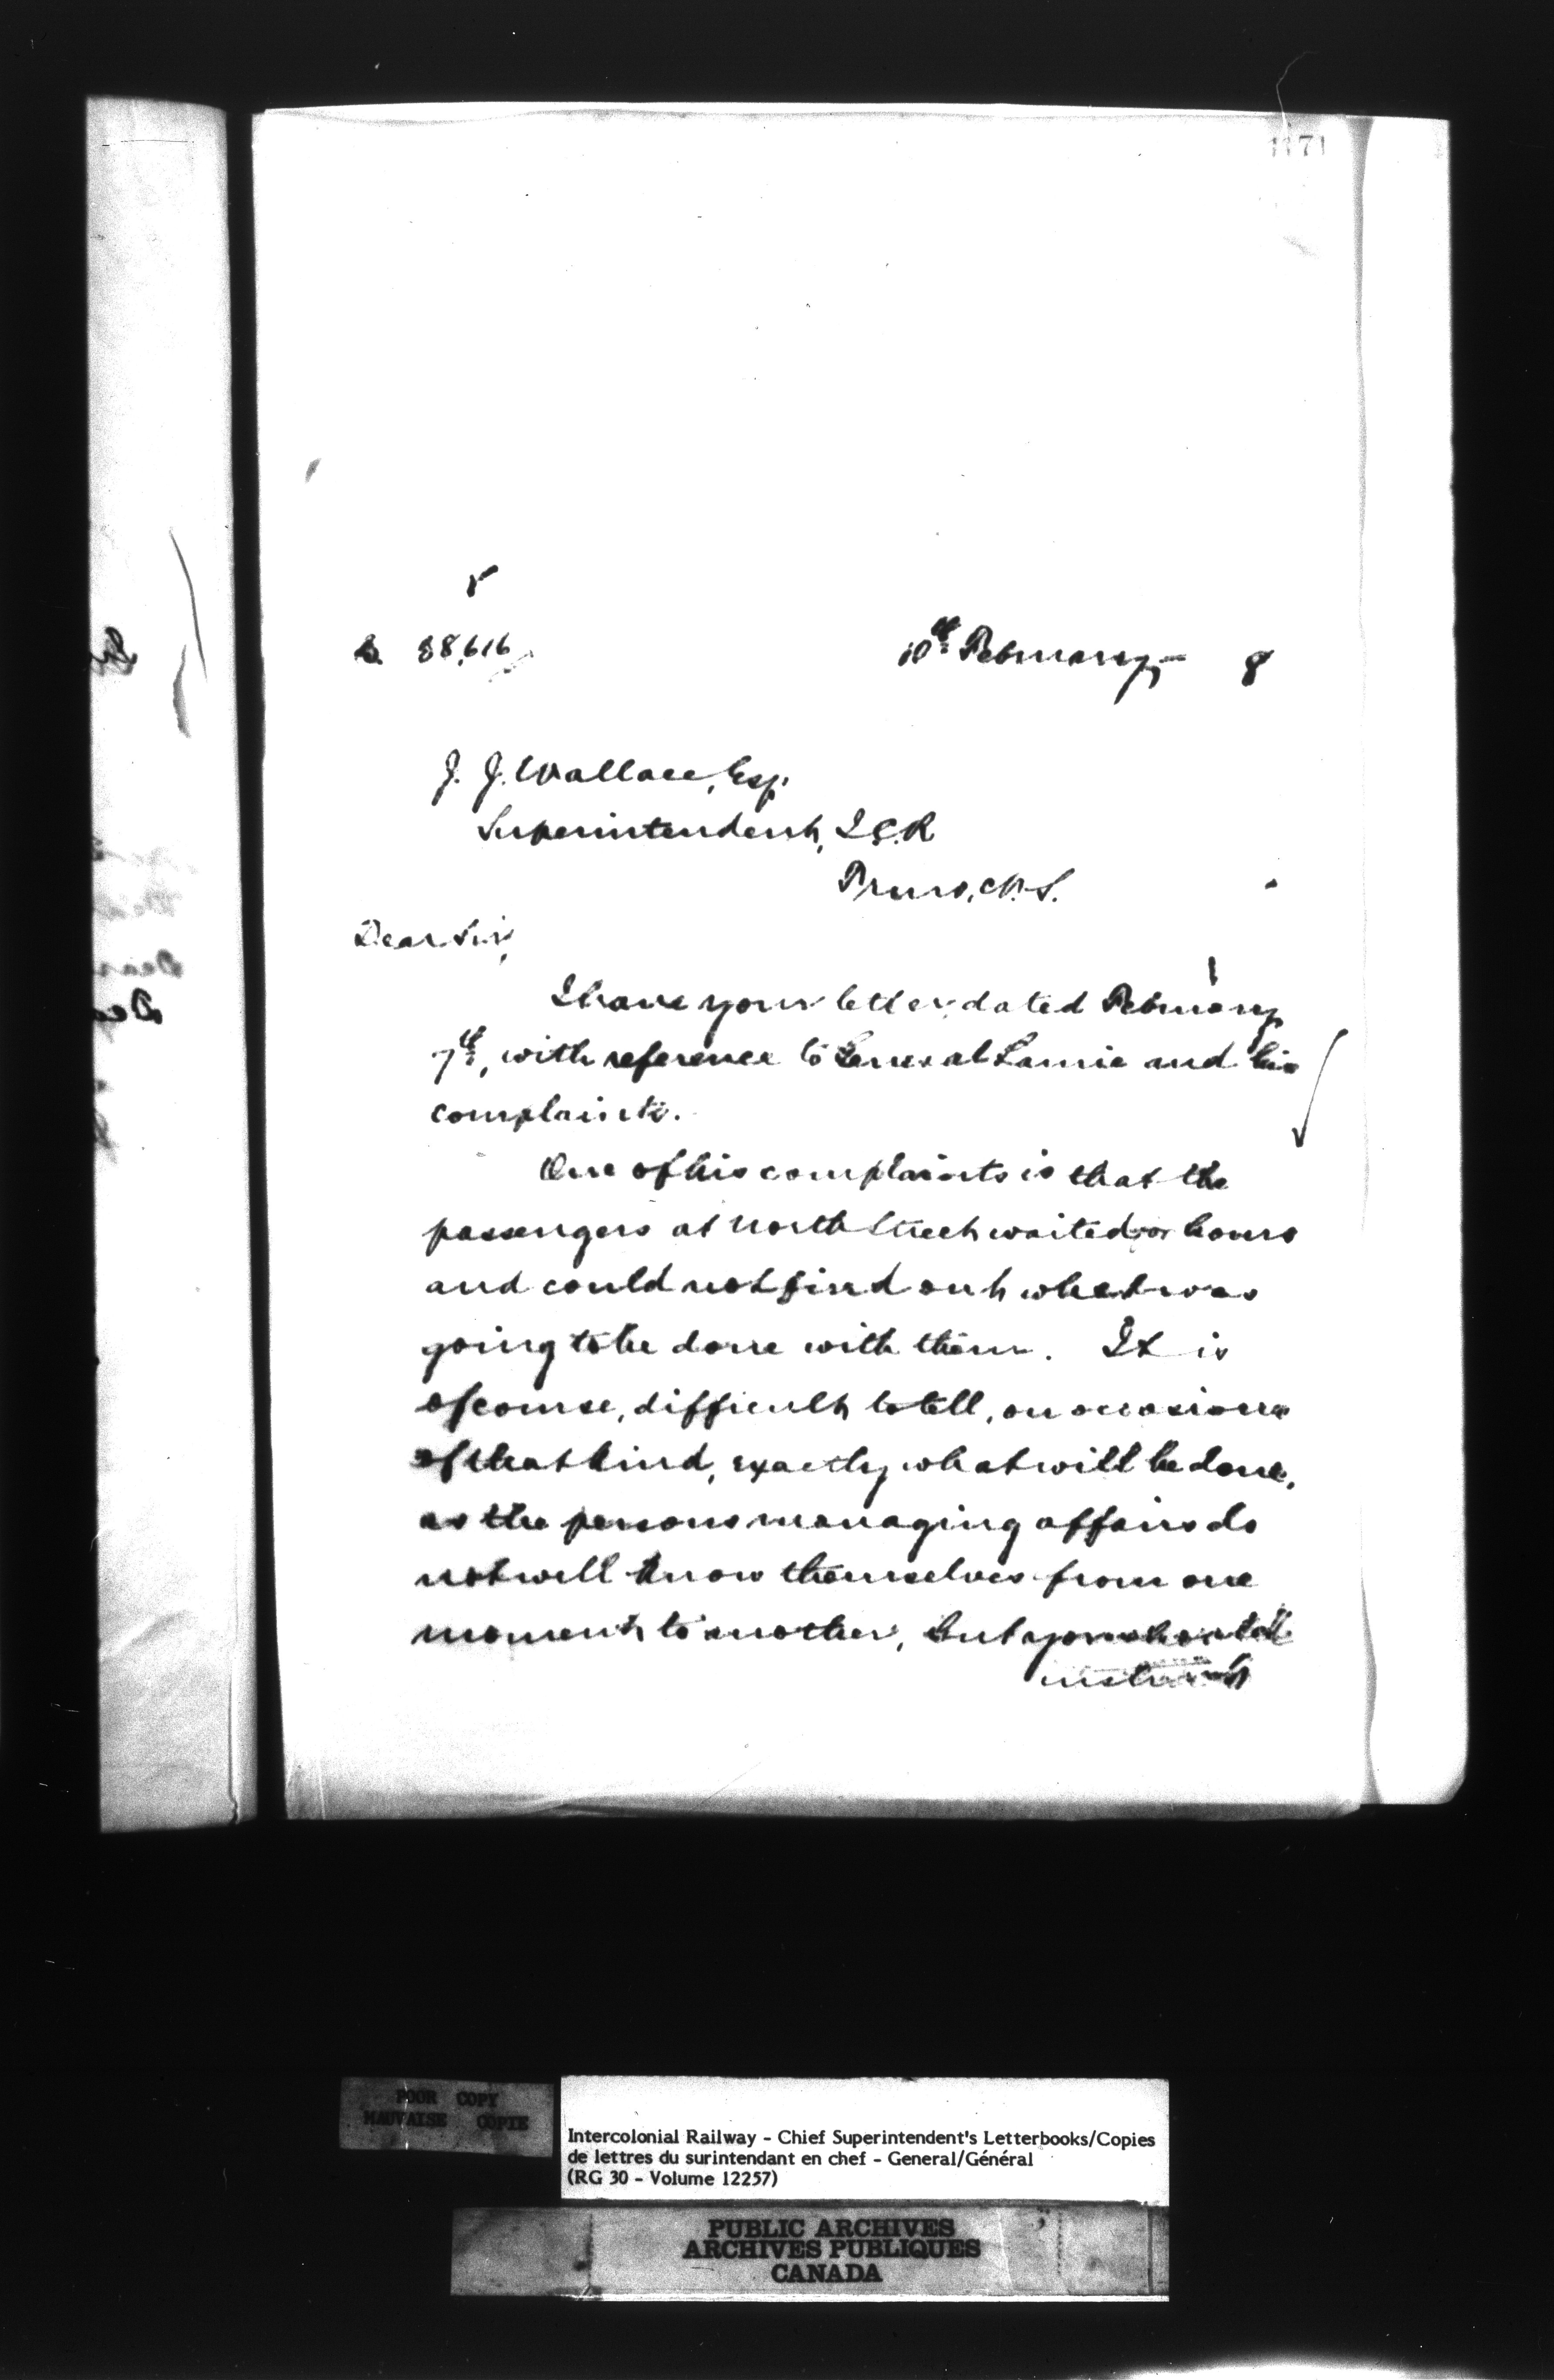 1171
38,616
10th February 8
J. J. Wallace, Esq.
Superintendent, I.C.R
Truro, N.S.
Dear Sir,
I have your letter dated February
7th, with reference to General Laurie and his
complaints.
One of his complaints is that the
passengers at North Street waited for hours
and could not find out what was
going to be done with them. It is
of course, difficult to tell, on occasions
of that kind, exactly what will be done,
as the persons managing affairs do
not well know themselves from one
moment to another, but you should
instruct
POOR COPY
MAUVAISE COPIE
Intercolonial Railway - Chief Superintendent's Letterbooks/Copies
de lettres du surintendant en chef - General/Général
(RG 30 - Volume 12257)
PUBLIC ARCHIVES
ARCHIVES PUBLIQUES
CANADA